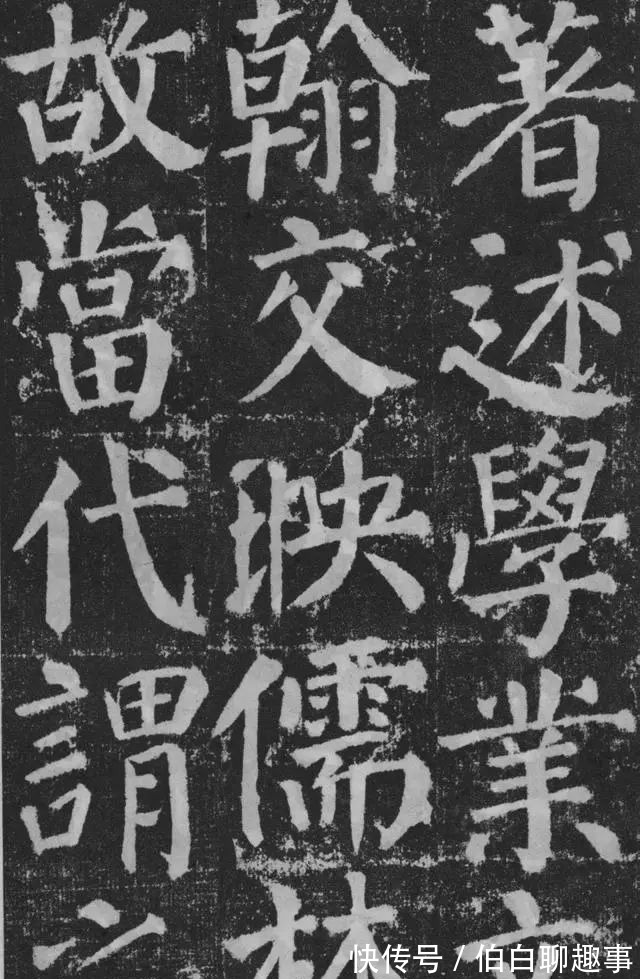 著述學業
翰交映儒林
故當代謂之
快传号 / 伯白聊趣事